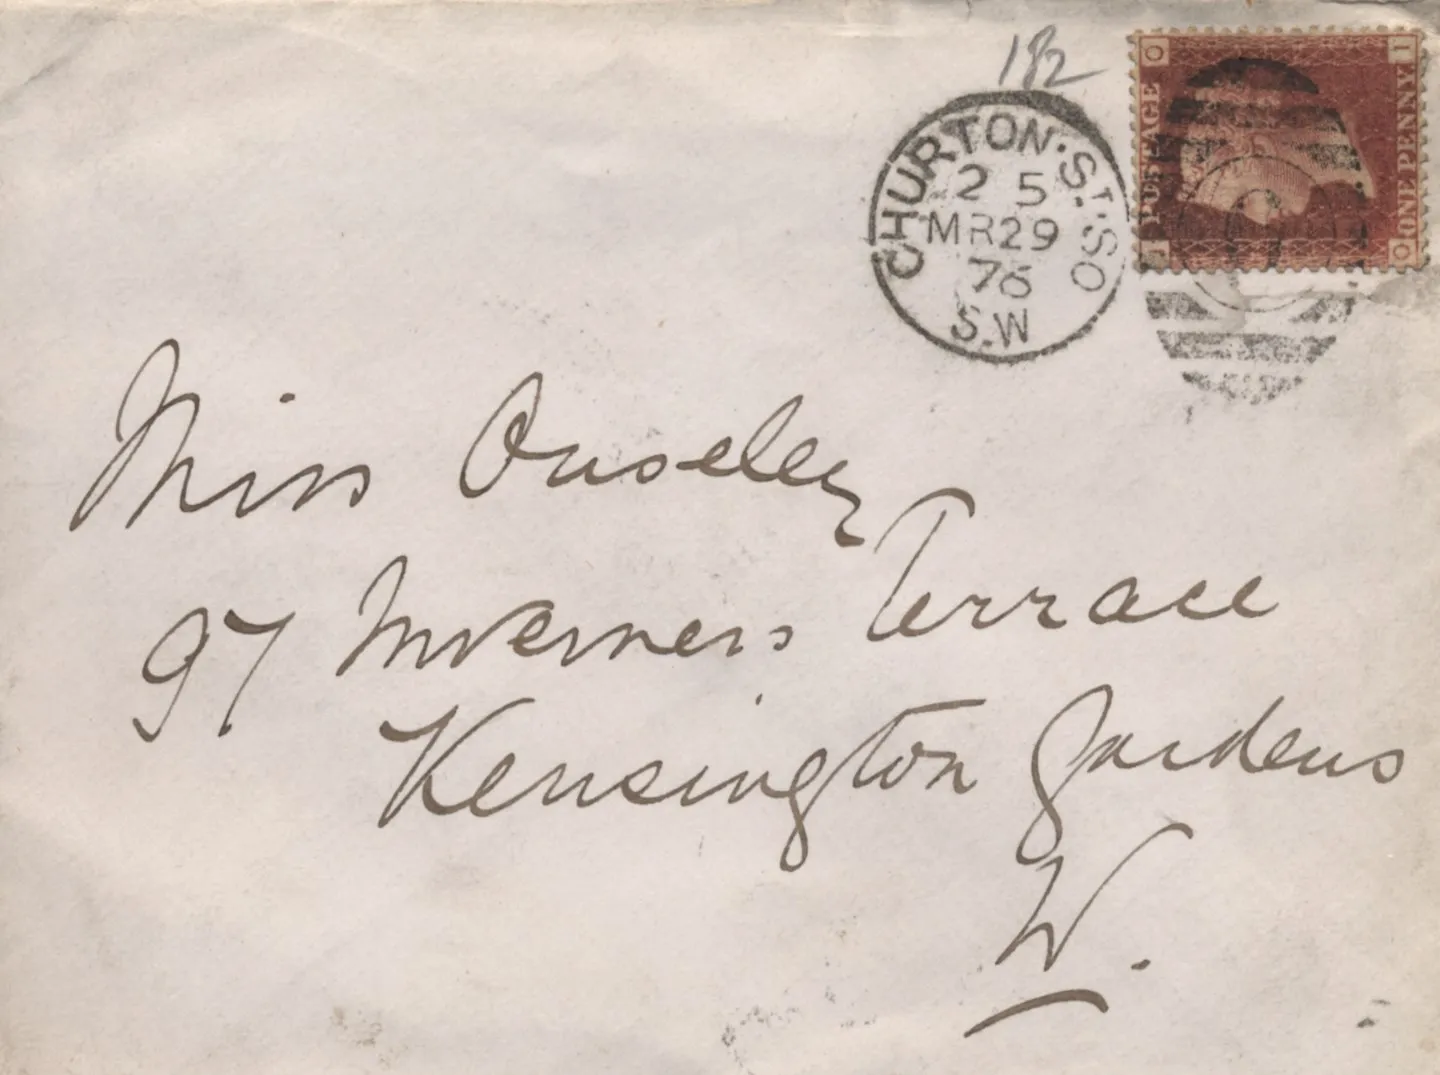 182
O I
POSTAGE
ONE PENNY
I O
CHURTON·ST·SO
2 5
MR29
76
S.W
Miss Ouseley
97 Inverness Terrace
Kensington Gardens
W.